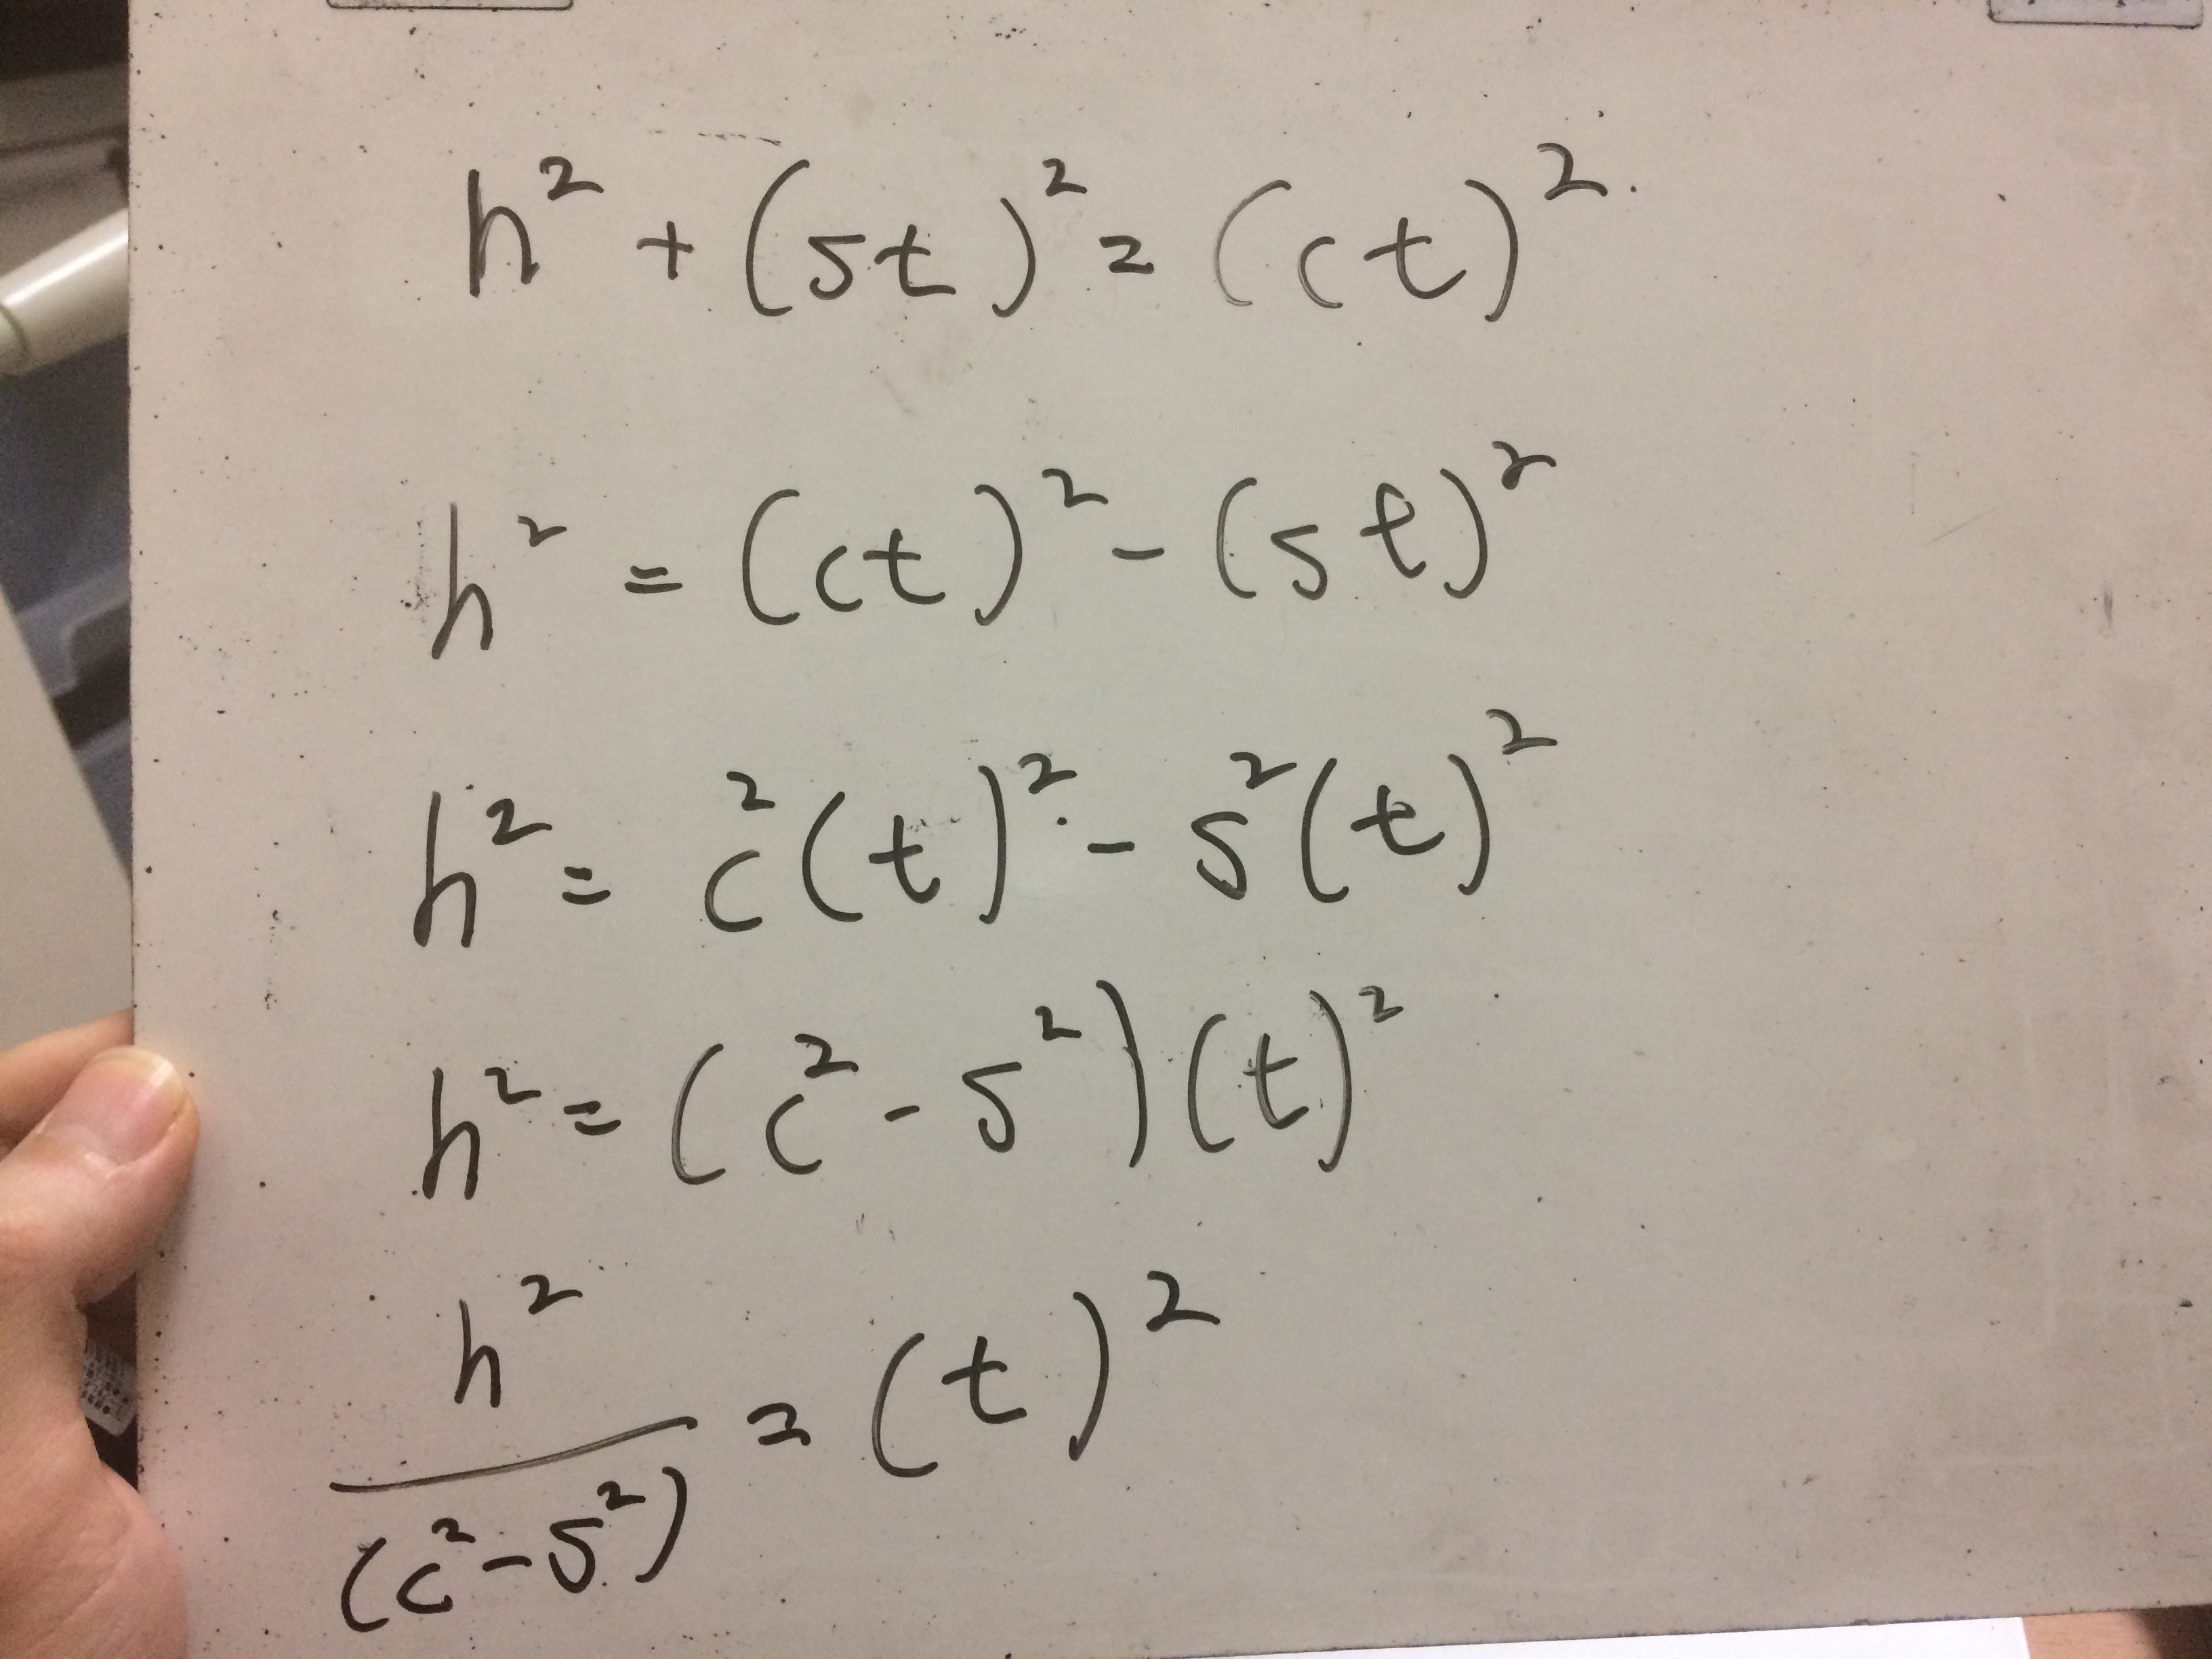 h² + (st)² = (ct)².
h² = (ct)² - (st)²
h² = c²(t)² - s²(t)²
h² = (c² - s²)(t)²
h² / (c² - s²) = (t)²